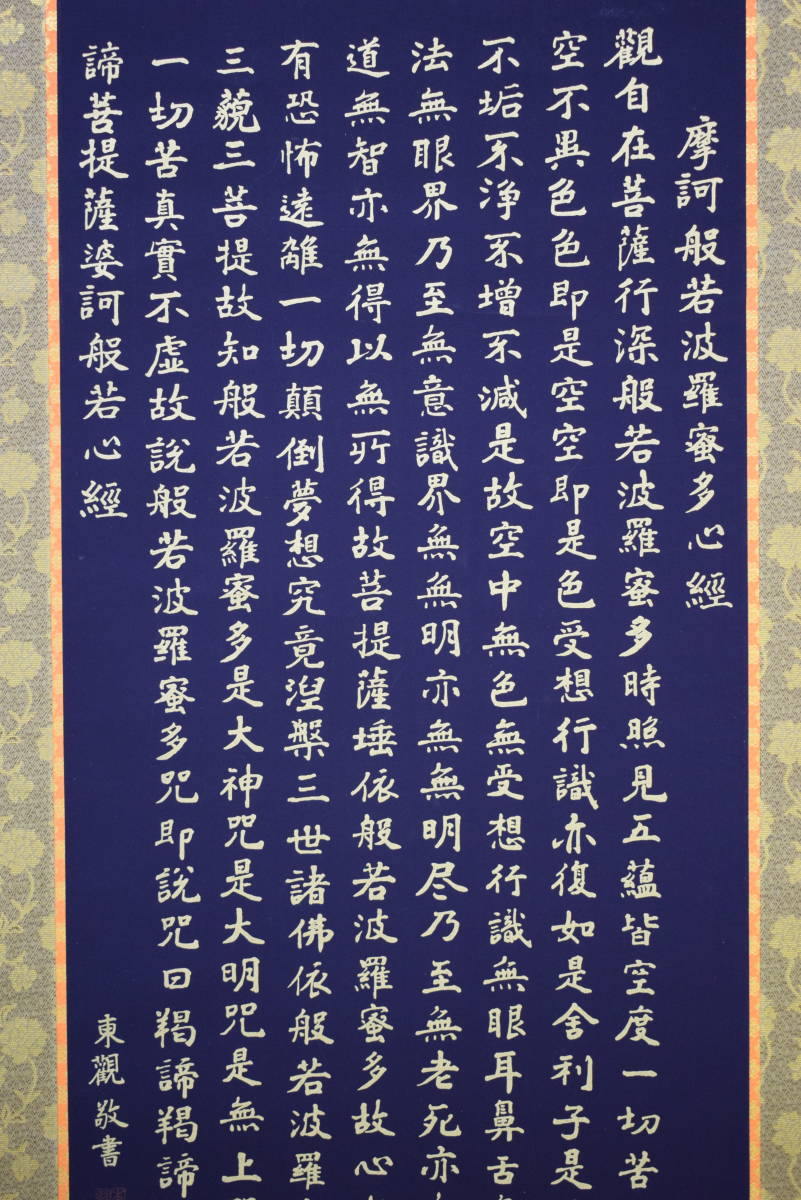 摩訶般若波羅蜜多心經
觀自在菩薩行深般若波羅蜜多時照見五蘊皆空度一切苦
空不異色色即是空空即是色受想行識亦復如是舍利子是
不垢不浄不增不減是故空中無色無受想行識無眼耳鼻舌
法無眼界乃至無意識界無無明亦無無明尽乃至無老死亦
道無智亦無得以無所得故菩提薩埵依般若波羅蜜多故心
有恐怖遠離一切顛倒夢想究竟涅槃三世諸佛依般若波羅
三藐三菩提故知般若波羅蜜多是大神咒是大明咒是無上
一切苦真實不虛故說般若波羅蜜多咒即說咒曰羯諦羯諦
諦菩提薩婆訶般若心經
東觀敬書